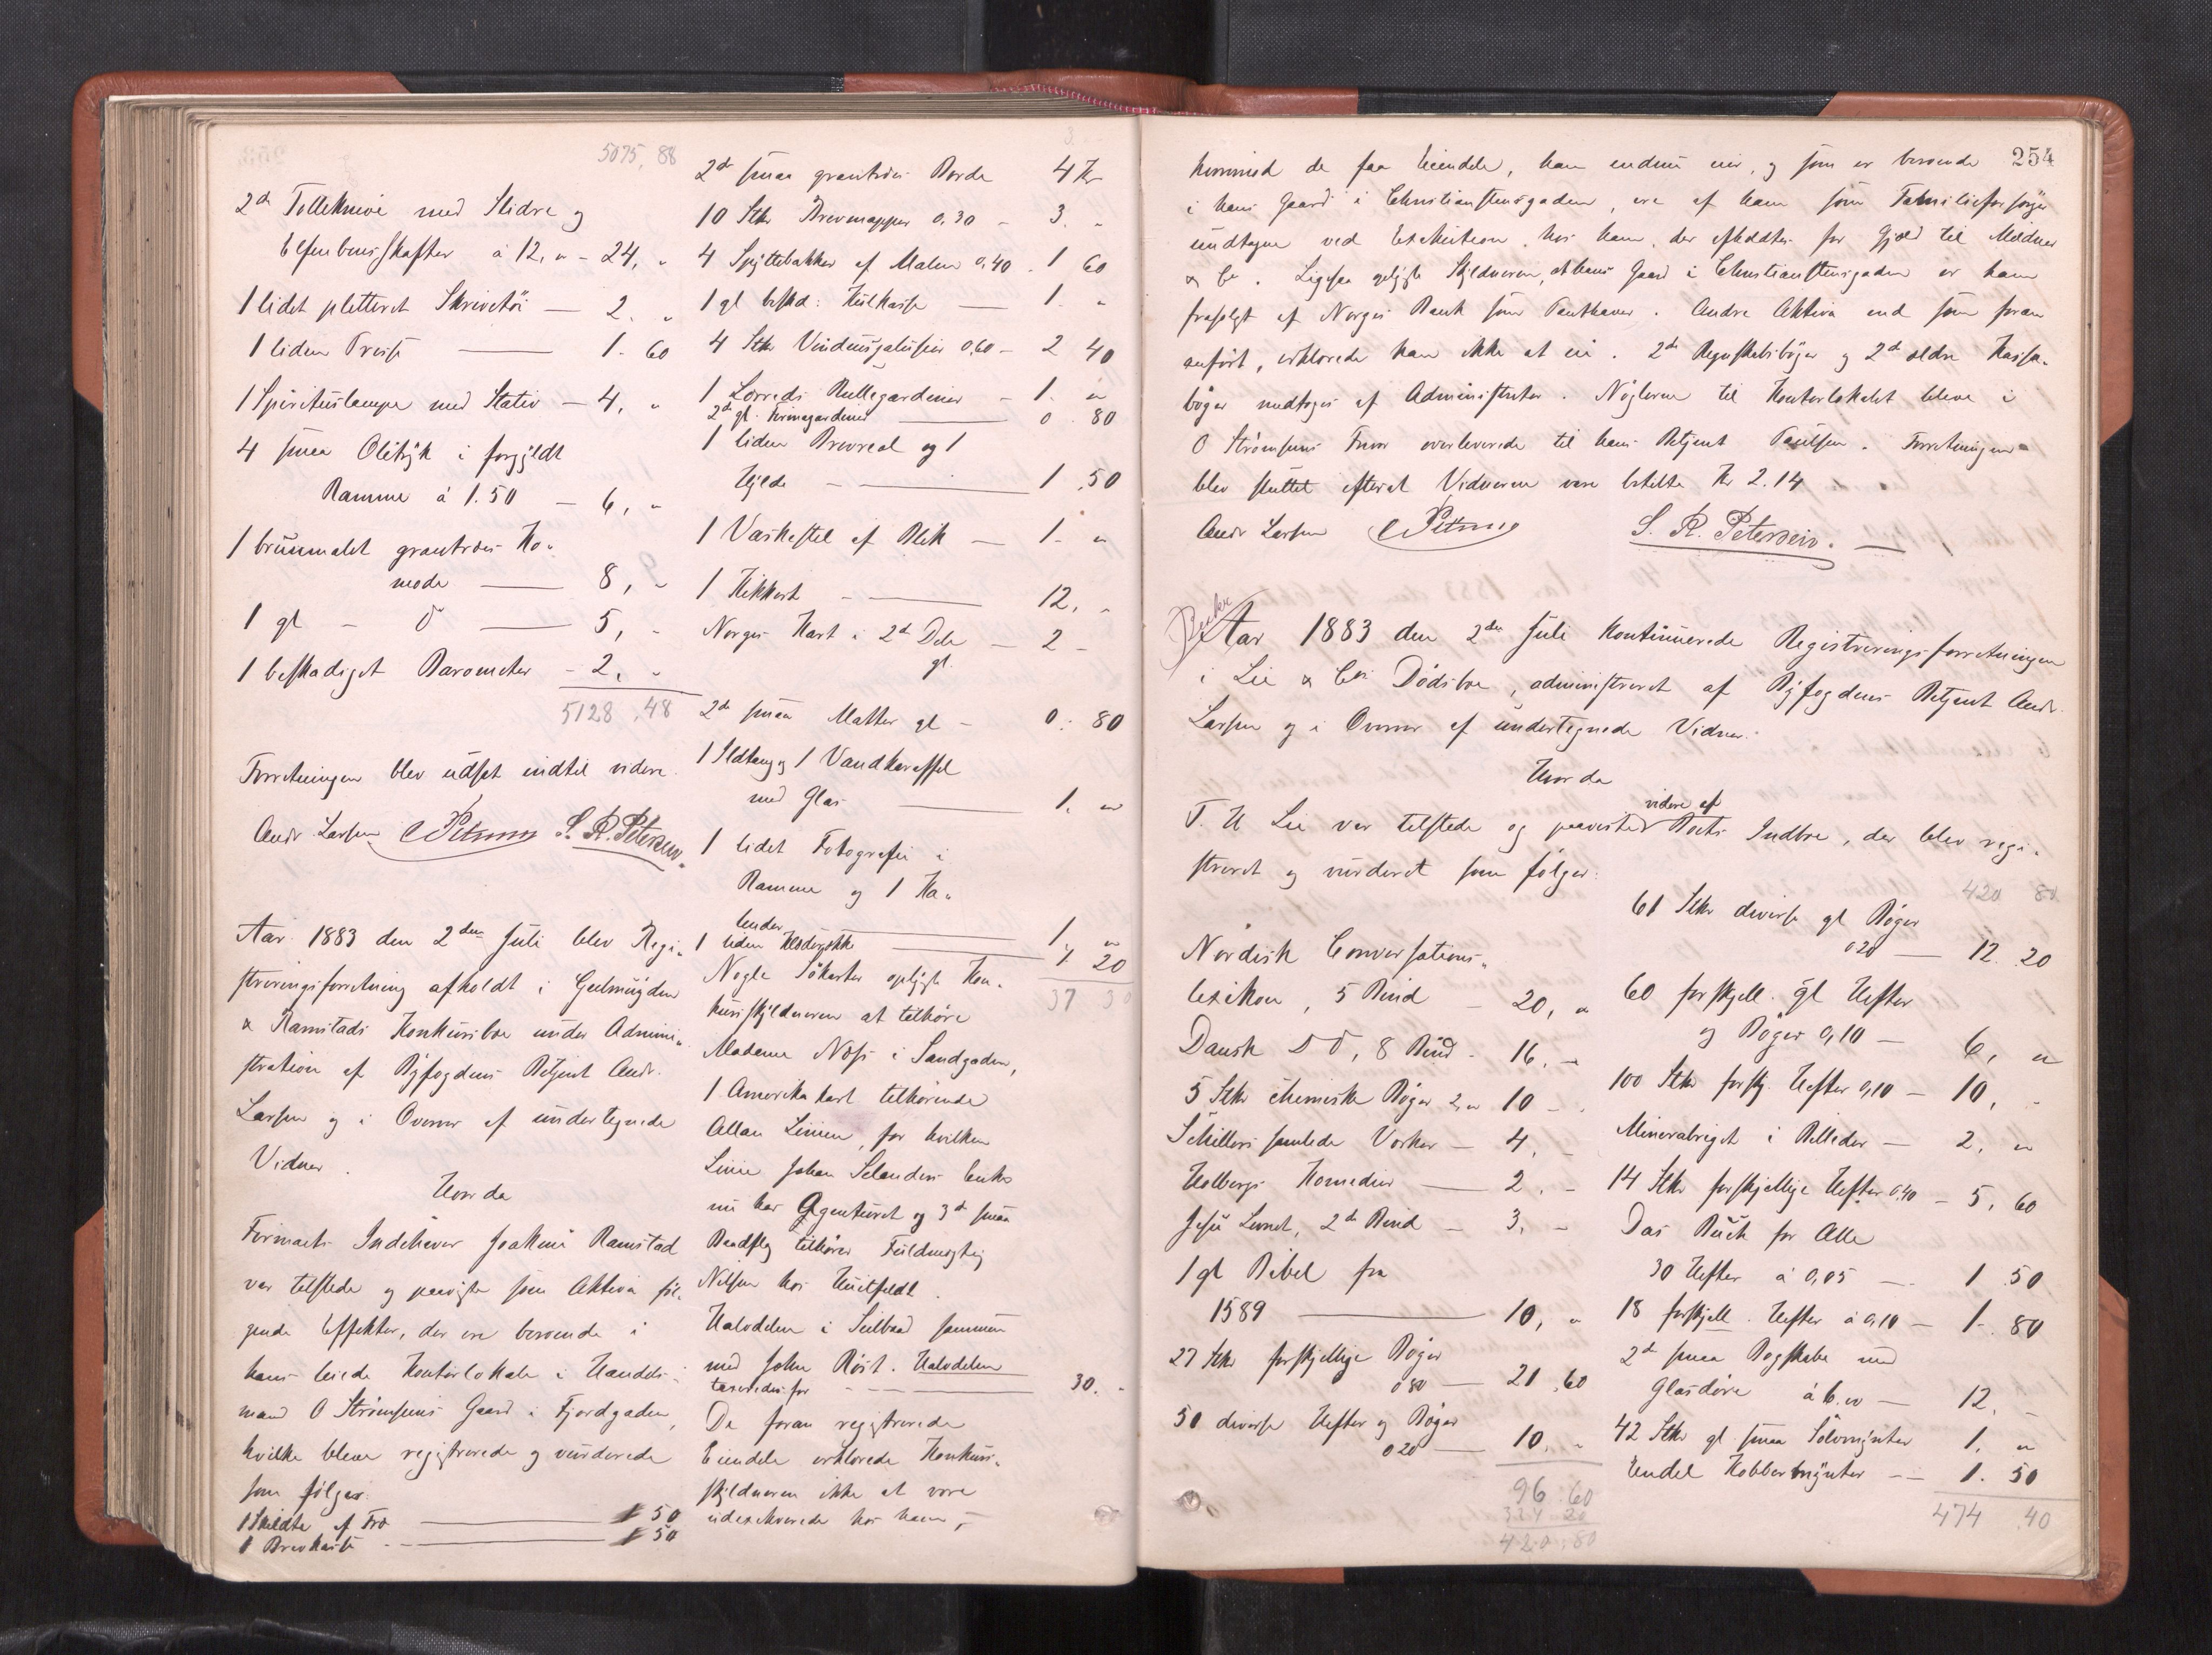 5075,88
2de Tolleknive med Slidre og
Elfenbensskafter à 12,„ – 24, „
1 lidet pletteret Skrivetöi — 2. „
1 liden Presse — 1. 60
1 Spirituslampe med Stativ — 4, „
4 smaa Olitryk i forgyldt
Ramme à 1.50 — 6, „
1 brunmalet grantræs Ko„
mode — 8, „
1 gl – D — 5, „
1 beskadiget Barometer – 2, „
5128,48
Forretningen blev udsat indtil videre.
Andr Larsen C Petersen S. R. Petersen.
Aar 1883 den 2den Juli blev Regi„
streringsforretning afholdt i Geelmuyden
& Ramstads Konkursbo under Admini„
stration af Byfogdens Betjent Andr.
Larsen og i Overvær af undertegnede
Vidner.
Hvorda
Firmaets Indehaver Joakim Ramstad
var tilstede og paaviste som Aktiva föl„
gende Effekter, der ere beroende i
hans leiede Kontorlokale i Handels„
mand O Strömsens Gaard i Fjordgaden,
hvilke bleve registrerede og vurderede
som fölger:
1 Skildt af Træ — 50
1 Brevkasse — 50
3.
2de smaa grantræs Borde 4 Kr
10 Stkr Brevmapper 0,30 – 3. „
4 Spyttebakker af Malm 0,40 . 1 60
1 gl beskd: Kulkasse — 1. „
4 Stkr Vinduesgalusier 0,60 – 2 40
1 Lærreds Rullegardiner – 1. „
2de gl. gardiner — 0 80
1 liden Brevreol og 1
Hylde — 1,50
1 Vaskestel af Blik — 1. „
1 Kikkert — 12, „
Norges Kart i 2de Dele — 2 –
gl.
2de smaa Matter gl – 0. 80
1 Ildtang og 1 Vandkaraffel
med Glas — 1. „
1 lidet Fotografi i
Ramme og 1 Ka„
lender — 1 „
1 liden — 1. 20
37 30
Nogle Sökarter oplyste Kon„
kursskyldneren at tilhöre
Madame Næss i Sandgaden,
1 Amerika kart tilhörende
Allan Linien, for hvilken
Linie Johan Selanders Enke
nu har Agenturet og 3de smaa
tilhörer Fuldmægtig
Nilsen hos Huitfeldt.
Halvdelen i Seilbaad sammen
med John Röst. Halvdelen
taxeredes for — 30. „
De foran registrerede
Eiendele erklærede Konkurs„
skyldneren ikke at være
udexekverede hos ham, –
254
hvorimod de faa Eiendele, han endnu eier, og som er beroende
i hans Gaard i Christianstensgaden, ere af ham som Familieforsörger
undtagne ved Exekution hos ham, der afholdtes for Gjæld til Meldner
& Co. Ligesaa oplyste Skyldneren, at hans Gaard i Christianstensgaden er ham
frasolgt af Norges Bank som Panthaver. Andre Aktiva end som foran
anfört, erklærede han ikke at eie. 2de Regnskabsböger og 2de ældre Kassa„
böger modtoges af Administrator. Nöglerne til Kontorlokalet bleve i
O Strömsens Fravær overleverede til hans Betjent Paulsen. Forretningen
blev sluttet efterat Vidnerne vare betalte Kr 2.14
Andr Larsen C Petersen S. R. Petersen.
Aar 1883 den 2den Juli kontinuerede Registreringsforretningen
i Lie & Cos Dödsbo, administreret af Byfogdens Betjent Andr.
Larsen og i Overvær af undertegnede Vidner.
Hvorda
videre af
T. H Lie var tilstede og paaviste Boets Indbo, der blev regi„
streret og vurderet som fölger:
Nordisk Conversations„
lexikon, 5 Bind – 20, „
Dansk D D, 8 Bind – 16. –
5 Stkr chemiske Böger 2,„ 10 –
Schillers samlede Værker – 4. –
Holbergs Komedier — 2. –
Jesu Levnet, 2de Bind – 3, –
1 gl Bibel fra
1589 — 10, „
27 Stkr forskjellige Böger
0 80 — 21,60
50 diverse Hefter og Böger
0 20 — 10. „
96.60
324 20
420.80
420 80
61 Stkr diverse gl Böger
0 20 — 12. 20
60 forskjell. gl Hefter
og Böger 0,10 — 6, „
100 Stkr forskj. Hefter 0,10 – 10, –
Mineralriget i Billeder — 2, „
14 Stkr forskjellige Hefter 0,40 – 5, 60
Das Buch for Alle
30 Hefter à 0,05 — 1 50
18 forskjell. Hefter à 0,10 — 1. 80
2de smaa Bogskabe med
Glasdöre à 6.„ — 12. –
42 Stkr gl smaa Sölvmynter 1, „
Endel Kobbermynter — 1. 50
474 40